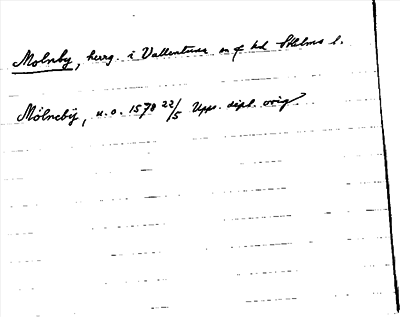 Molnby, herrg. i Vallentuna sn o f hd Sthlms l.
Mölnebÿ, u.o. 1578 22/5 Upps. dipl. orig